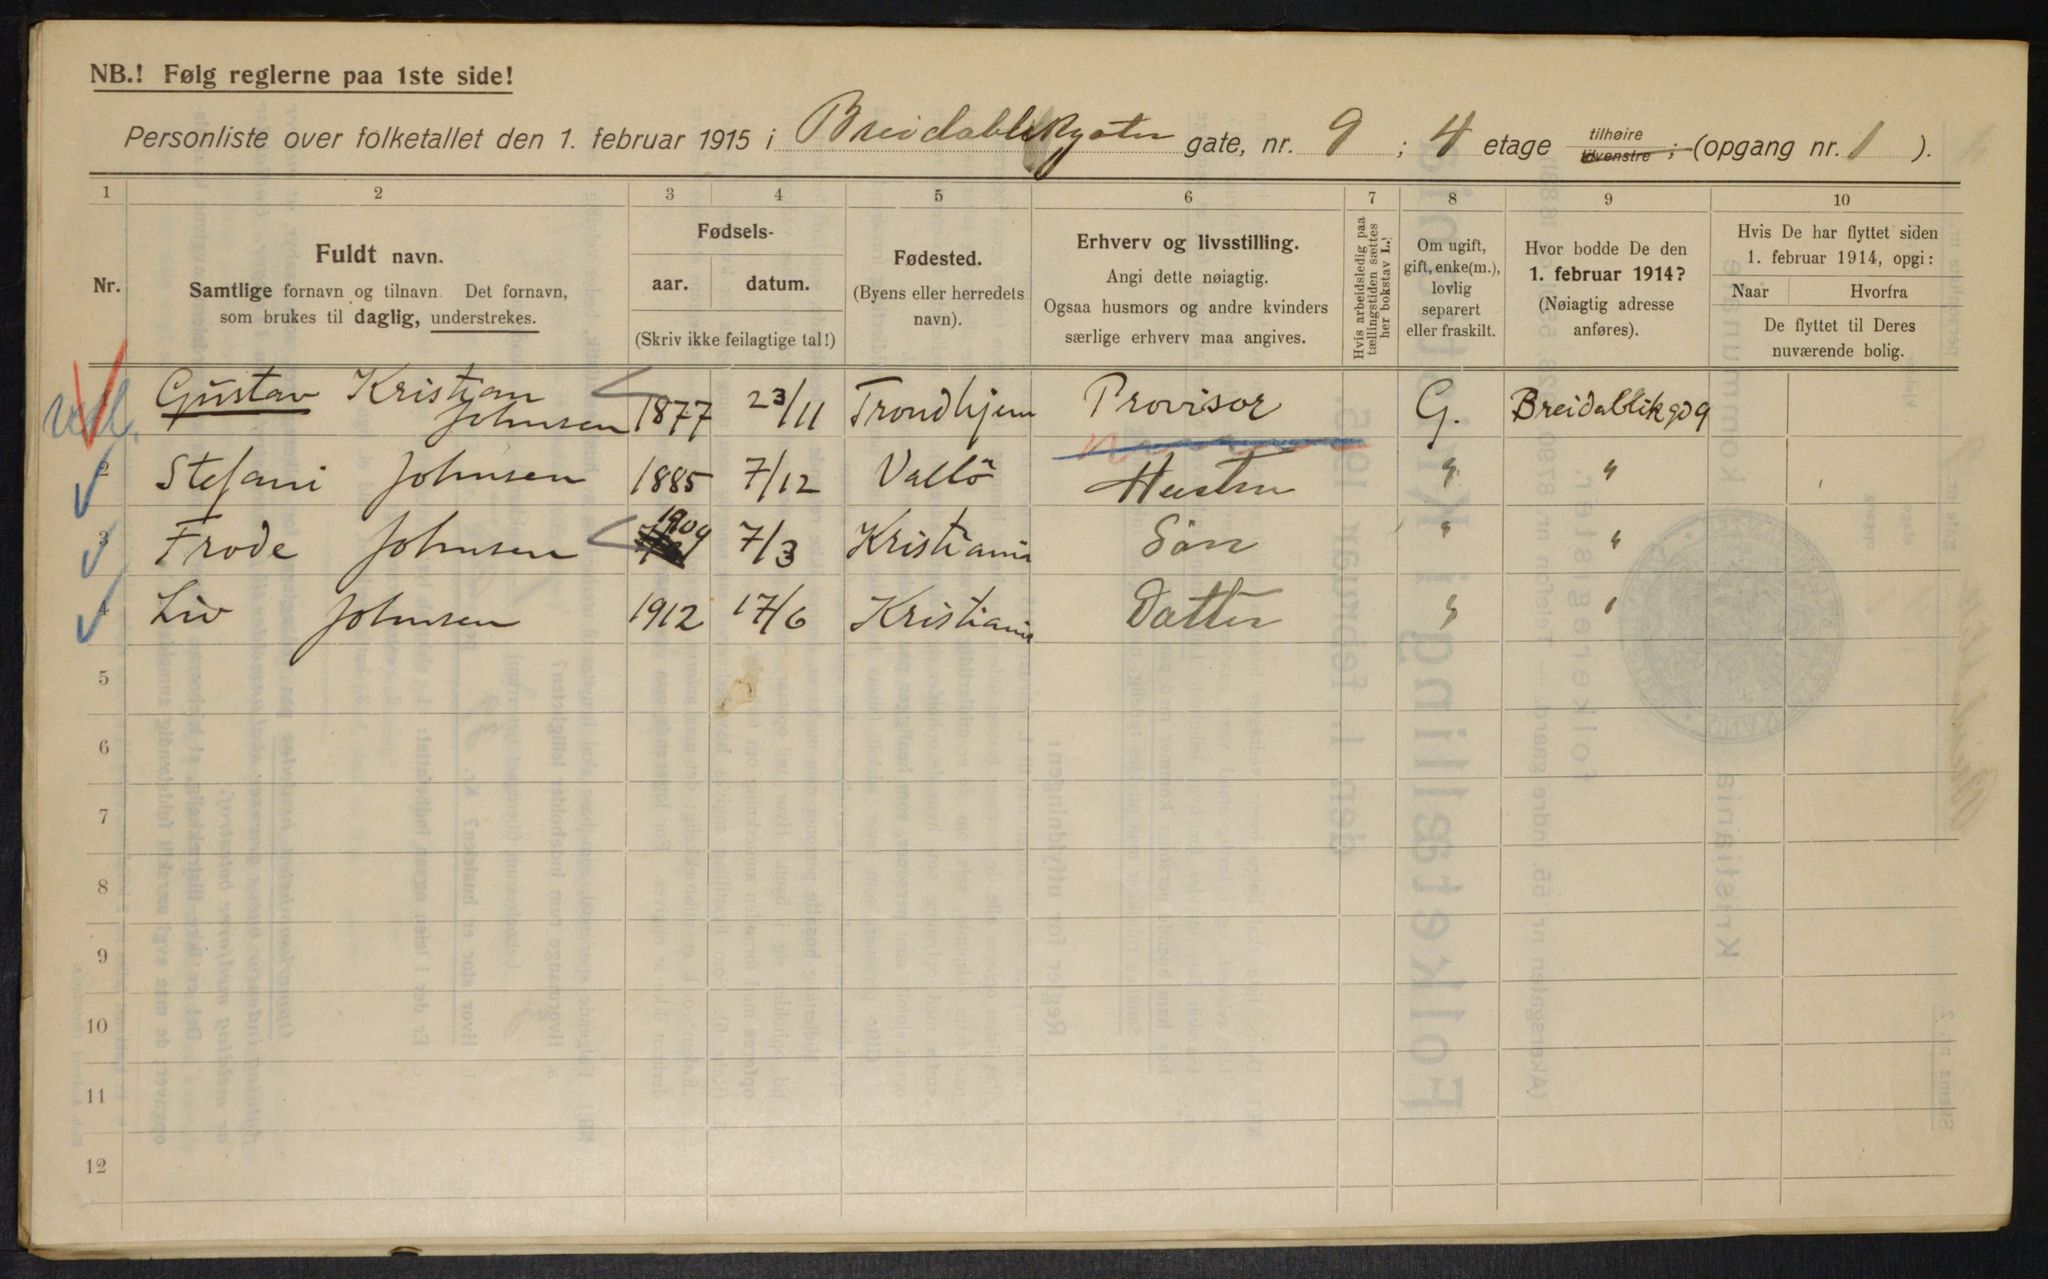 NB.! Følg reglerne paa 1ste side!
Personliste over folketallet den 1. februar 1915 i Breidablikgaten gate, nr. 9 ; 4 etage tilhøire tilvenstre ; (opgang nr. 1 ).
1 2 3 4 5 6 7 8 9 10
Nr.
Fuldt navn.
Samtlige fornavn og tilnavn. Det fornavn,
som brukes til daglig, understrekes.
Fødsels-
aar. datum.
(Skriv ikke feilagtige tal!)
Fødested.
(Byens eller herredets
navn).
Erhverv og livsstilling.
Angi dette nøiagtig.
Ogsaa husmors og andre kvinders
særlige erhverv maa angives.
Hvis arbeidsledig paa
tællingstiden sættes
her bokstav L.
Om ugift,
gift, enke(m.),
lovlig
separert
eller fraskilt.
Hvor bodde De den
1. februar 1914?
(Nøiagtig adresse
anføres).
Hvis De har flyttet siden
1. februar 1914, opgi:
Naar Hvorfra
De flyttet til Deres
nuværende bolig.
Gustav Kristjan Johnsen 1877 23/11 Trondhjem Provisor G. Breidablikgd 9
2 Stefani Johnsen 1885 7/12 Vallö Hustru " "
3 Frode Johnsen 1909 7/3 Kristiania Sön " "
4 Liv Johnsen 1912 17/6 Kristiania Datter " "
5
6
7
8
9
10
11
12